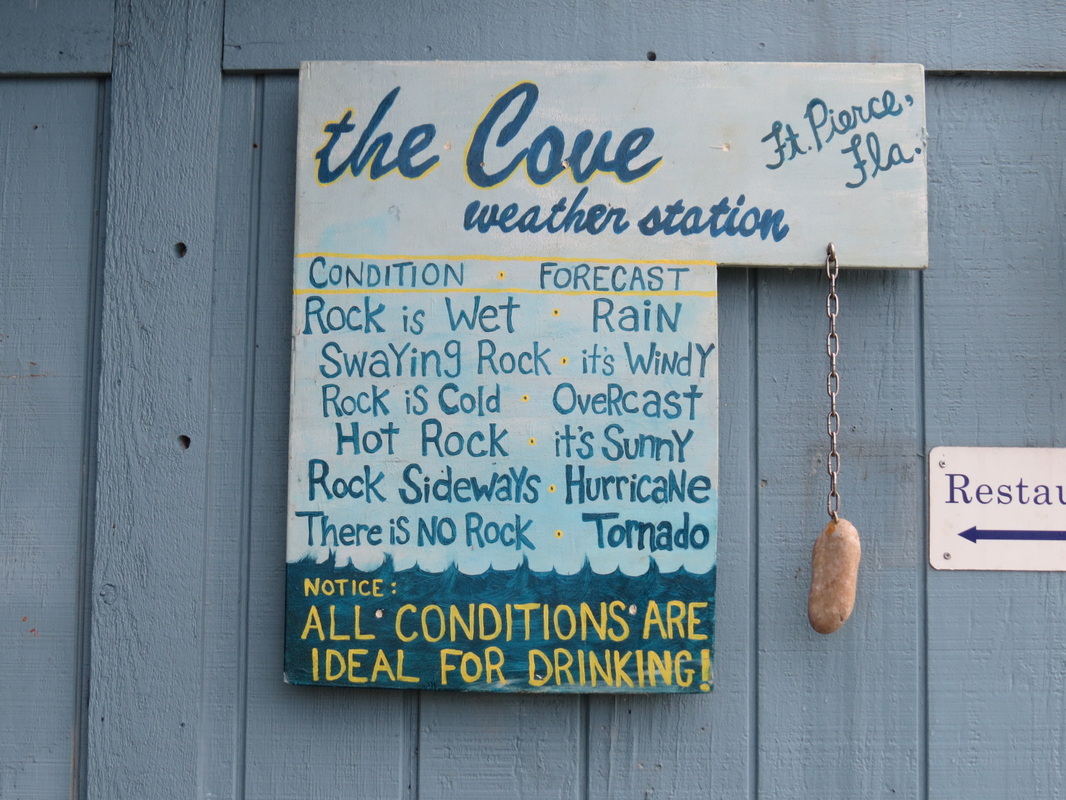 the Cove
weather station
Ft. Pierce,
Fla.
CONDITION · FORECAST
Rock is Wet · RaiN
SwaYing Rock · it's WiNdY
Rock iS Cold · OveRcast
Hot Rock · it's SunnY
Rock SidewaYs · HurricaNe
There iS NO Rock · Tornado
NOTICE:
ALL CONDITIONS ARE
IDEAL FOR DRINKING!
Restau